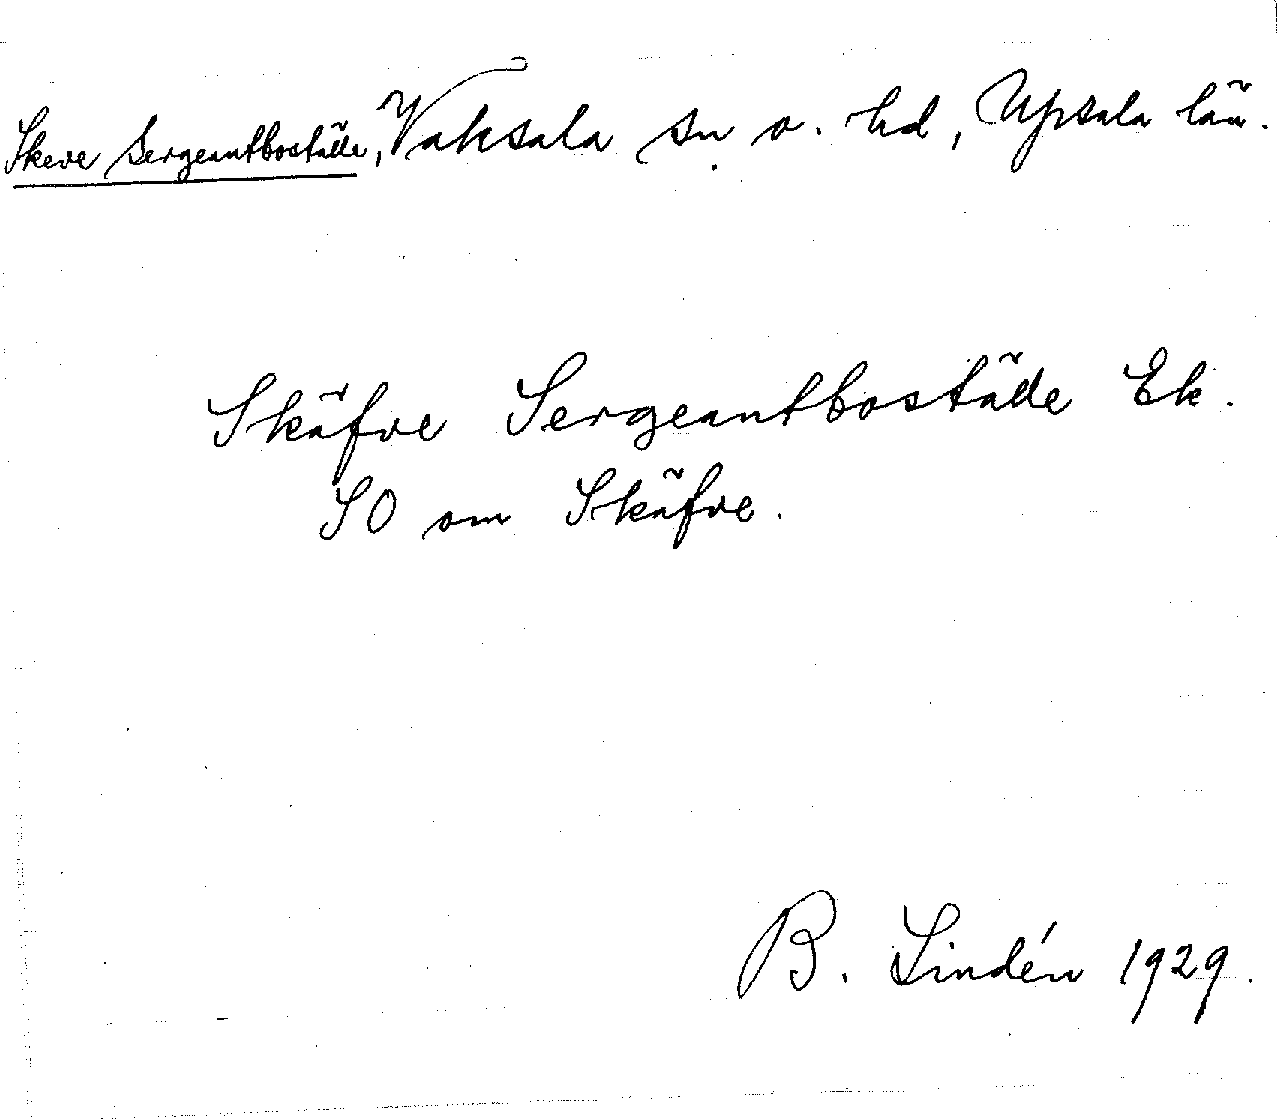 Skeve Sergeantboställe, Vaksala sn o. hd, Upsala län.
Skäfve Sergeantboställe Ek.
SO om Skäfve.
B. Lindén 1929.